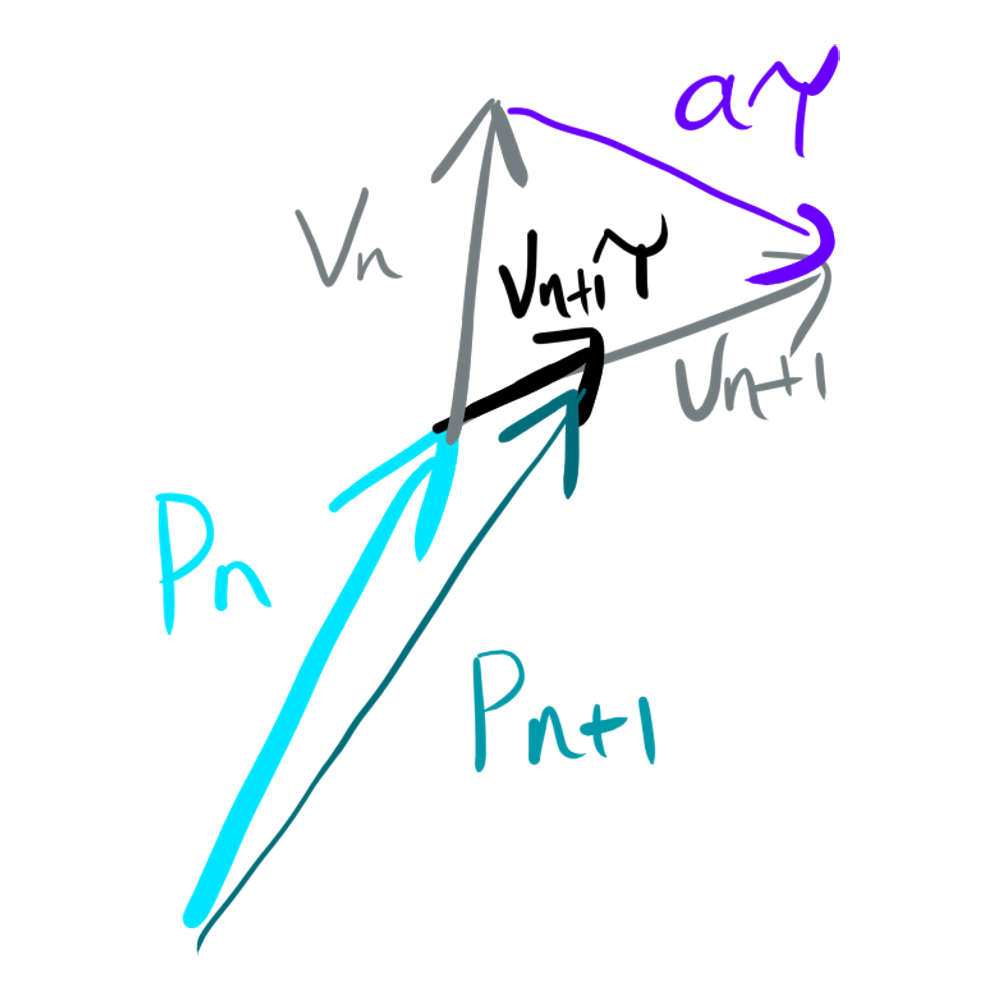 aτ
Vn
Vn+1τ
Vn+1
Pn
Pn+1